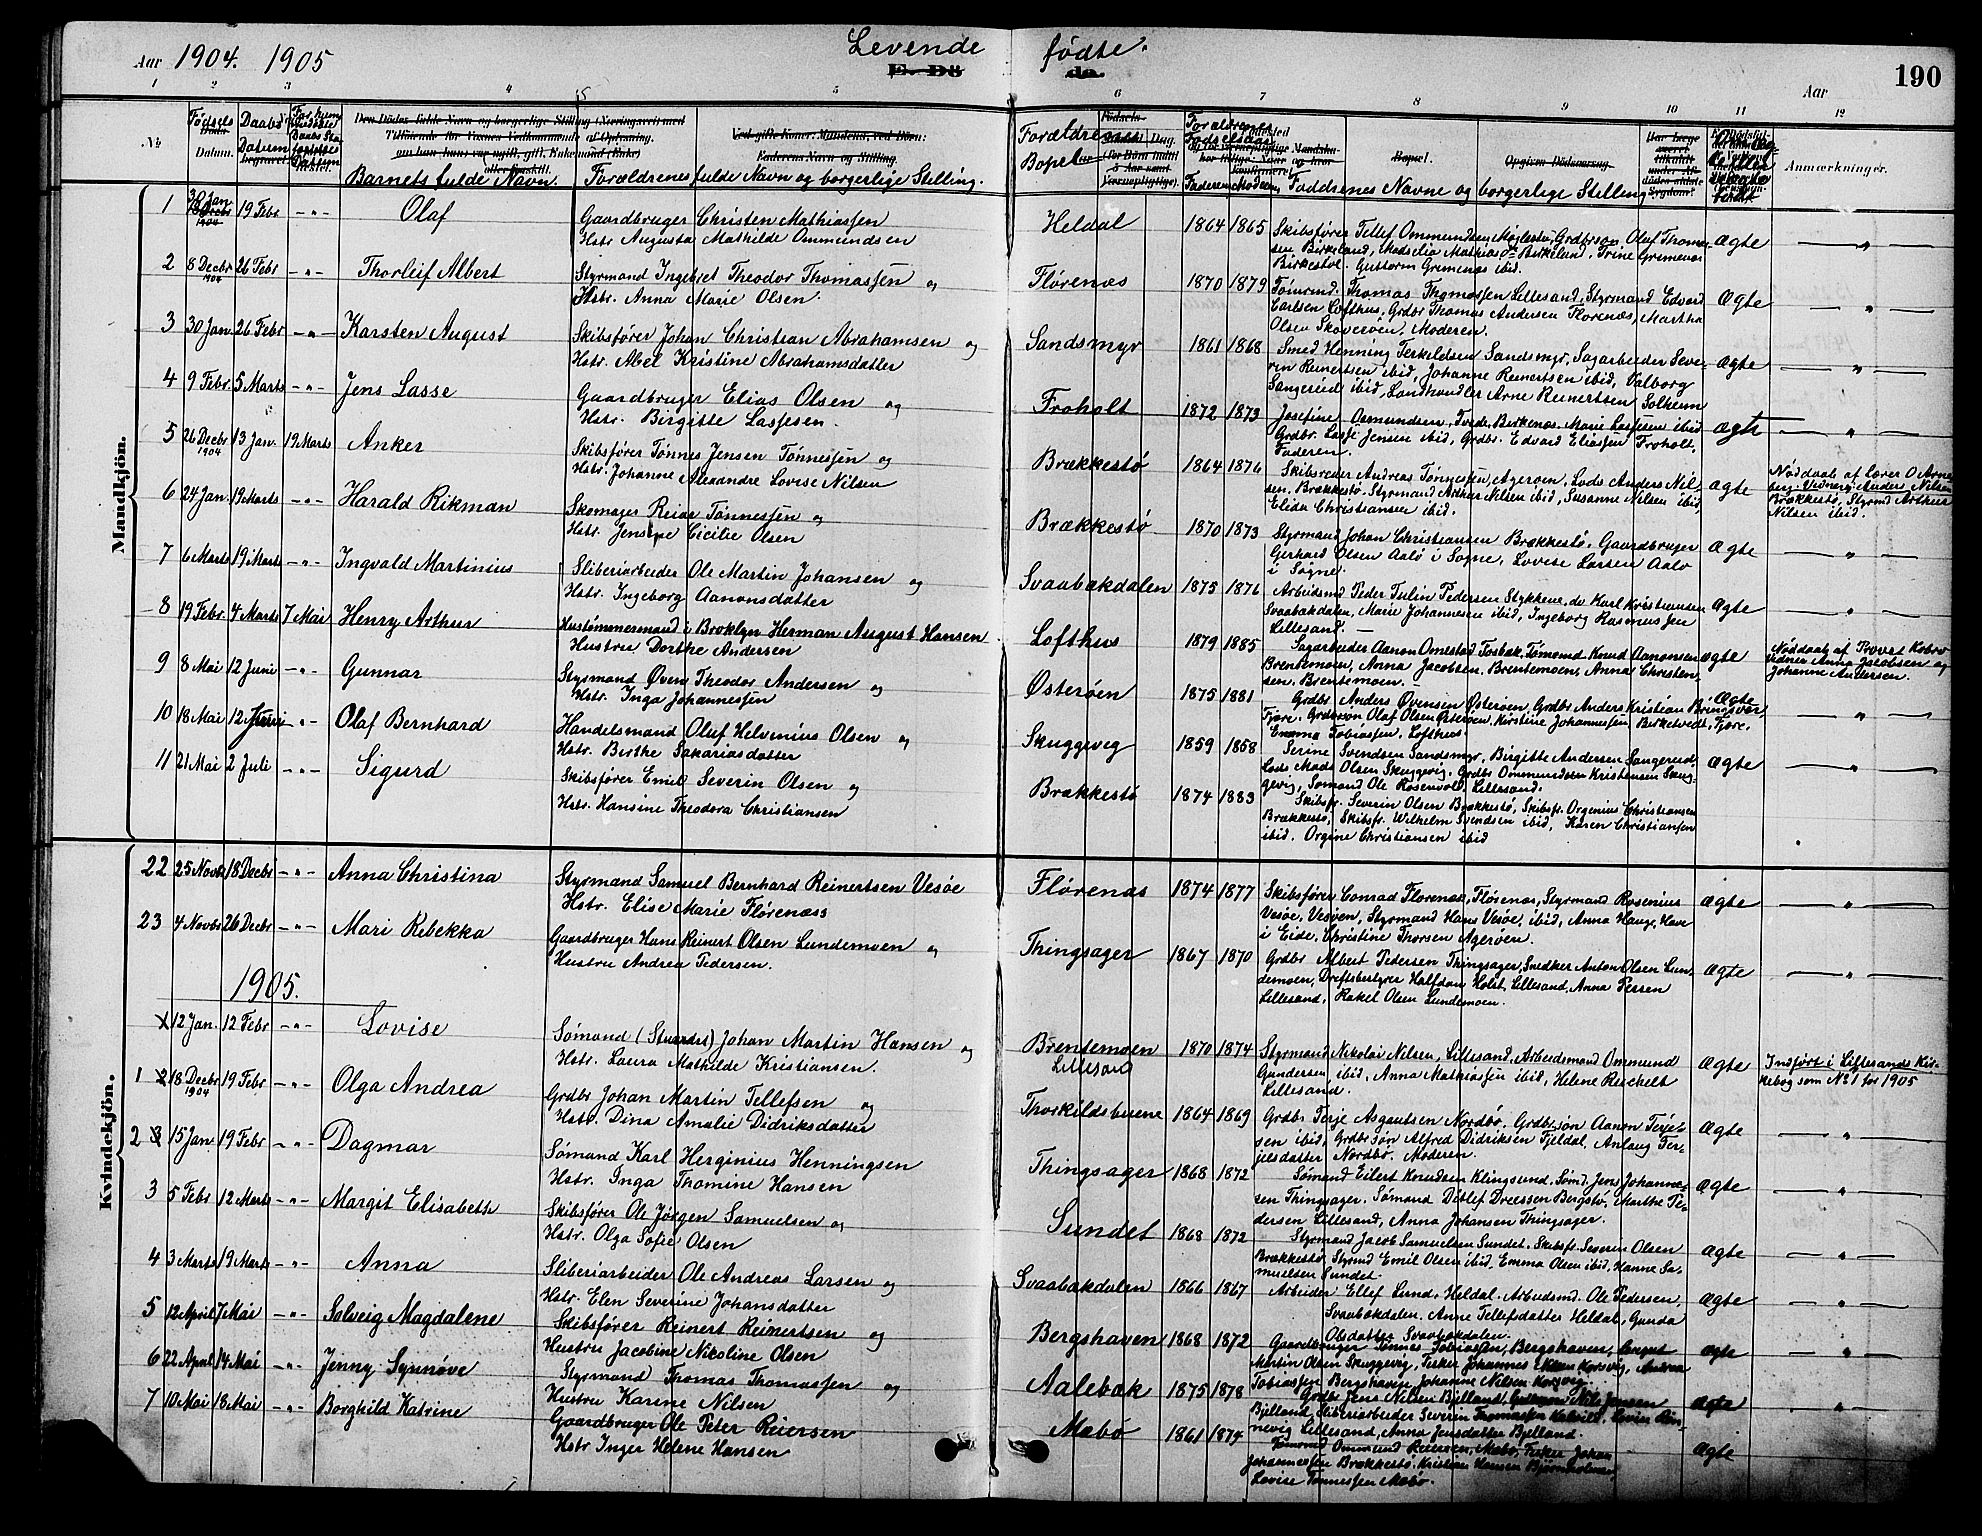 Aar 1904. 1905
Levende fødte.
190
Aar
1 2 3 4 5 6 7 8 9 10 11 12
№
Fødsels Datum.
Daabs Datum
Barnets fulde Navn.
Forældrenes fulde Navn og borgerlige Stilling.
Forældrenes Bopel
Forældrenes Fødselsaar
Faderen Moderen
Faddernes Navne og borgerlige Stilling
Anmærkninger.
Mandkjön.
1 30 Jan 19 Febr -"- Olaf
Gaardbruger Christen Mathiassen
Hstr Augusta Mathilde Ommundsen
Heldal 1864 1865
Skibsfører Tellef Ommundsen
Ægte
2 8 Decbr 1904 26 Febr -"- Thorleif Albert
Styrmand Ingebret Theodor Thomassen og
Hstr. Anna Marie Olsen.
Flørenæs 1870 1879
Tømrmd. Thomas Thomassen Lillesand, Styrmand Edvard
Carlsen Lofthus, Grdbr Thomas Andersen Florenæs, Martha
Olsen Skoverøen, Moderen.
Ægte
3 30 Jan 26 Febr -"- Karsten August
Skibsfører Johan Christian Abrahamsen og
Hstr. Abel Kristine Abrahamsdatter
Sandsmyr 1861 1868
Smed Henning Terkildsen Sandsmyr, Sagarbeider Seve-
rin Reinertsen ibid, Johanne Reinertsen ibid, Valborg
Sangereid ibid, Landhandler Arne Reinertsen Solheim
Ægte
4 9 Febr. 5 Marts -"- Jens Lasse
Gaardbruger Elias Olsen og
Hstr. Birgitte Lassesen.
Froholt 1872 1873
Josefine Osmundsen, Tvede, Birkenæs, Marie Lassesen ibid
Grdbr. Lasse Jensen ibid, Grdbr. Edvard Eliassen Froholt,
Faderen.
Ægte
5 26 Decbr 1904 13 Jan. 19 Marts Anker
Skibsfører Tønnes Jensen Tønnesen og
Hstr. Johanne Alexandre Lovise Nilsen
Brækkestø 1864 1876
Skibsreder Andreas Tønnesen, Agerøen, Lods Anders Nil-
sen, Brækkestø, Styrmand Arthur Nilsen ibid, Susanne Nilsen ibid,
Elida Christiansen ibid.
Ægte
Nøddaab af Lærer O Arne-
berg. Vidner: Anders Nilsen
Brækkestø, Styrmd Arthur
Nilsen ibid.
6 24 Jan. 19 Marts -"- Harald Rikman
Skomager Reier Tønnessen og
Hstr. Jensine Cicilie Olsen
Brækkestø 1870 1873
Styrmand Johan Christiansen Brækkestø, Gaardbruger
Gerhard Olsen Aalø i Søgne, Lovise Larsen Aalø
i Søgne.
Ægte
7 6 Marts 19 Marts -"- Ingvald Martinius
Sliberiarbeider Ole Martin Johansen og
Hstr. Ingeborg Aanonsdatter
Svaabækdalen 1875 1876
Arbeidsmd Peder Tulin Pedersen Stykkene, do Karl Kristiansen
Svaabækdalen, Marie Johannesen ibid, Ingeborg Rasmussen
Lillesand.
Ægte
8 19 Febr. 4 Marts 7 Mai Henry Arthur
Hustømmermand i Broklyn Herman August Hansen
Hustru Dorthe Andersen
Lofthus 1879 1885
Sagarbeider Aanon Omestad Fosbæk, Tømmend Knud Aanonsen
Brentemoen, Anna Jacobsen, Brentemoen, Anna Christen-
sen, Brentemoen.
Ægte
Nøddaab af Provst Kobro
Vidner Anna Jacobsen og
Johanne Andersen.
9 8 Mai 12 Juni -"- Gunnar
Styrmand Øven Theodor Andersen og
Hstr. Inga Johannessen
Østerøen 1875 1881
Grdbr. Anders Øvensen Østerøen, Grdbr Anders Kristian Bringsvær,
Fjære. Grdbrsøn Olaf Olsen Østerøen, Kirstine Johannessen Birketvedt, Fjære.
Emma Tobiassen, Lofthus.
Ægte
10 18 Mai 12 Juni -"- Olaf Bernhard
Handelsmand Oluf Helvinius Olsen og
Hstr. Birthe Sakariasdatter
Skuggevig 1859 1858
Serine Svendsen Sandsmyr, Birgitte Andersen Sangereid,
Lods Mads Olsen Skuggevig, Grdbr Ommundsen Kristensen Skug-
gevig, Sømand Ole Rosenvold, Lillesand.
Ægte
11 21 Mai 2 Juli -"- Sigurd
Skibsfører Emil Severin Olsen og
Hstr. Hansine Theodora Christiansen
Brækkestø 1874 1883
Skibsfr. Severin Olsen Brækkestø, Skibsfr. Orgenius Christiansen
Brækkestø, Skibsfr. Wilhelm Svendsen ibid, Karen Christiansen
ibid. Orgine Christiansen ibid
Kvindekjön.
22 25 Novbr 18 Decbr -"- Anna Christina
Styrmand Samuel Bernhard Reinertsen Vesøe
Hstr. Elise Marie Flørenæss
Flørenæs 1874 1877
Skibsfører Conrad Florenæs, Fløsenæs, Styrmand Rosenius
Vesøe, Vesøen, Styrmand Hans Vesøe, ibid, Anna Hauge, Have
i Eide, Christine Thorsen Agerøen.
Ægte
23 4 Novbr 26 Decbr -"- Mari Rebekka
Gaardbruger Hans Reinert Olsen Lundemoen og
Hustru Andrea Pedersen.
Thingsager 1867 1870
Grdbr Albert Pedersen Thingsager, Snedker Anton Olsen Lun-
demoen, Driftsbestyrer Halfdan Holst, Lillesand, Anna Persen
Lillesand, Rakel Olsen Lundemoen.
Ægte
1905.
12 Jan. 12 Febr -"- Lovise
Sømand (Stuardt) Johan Martin Hansen og
Hstr. Laura Mathilde Kristiansen.
Brentemoen Lillesand 1870 1874
Styrmand Nikolai Nilsen, Lillesand, Arbeidsmand Ommund
Gundersen ibid, Anna Mathiassen ibid, Helene Reschelt
Lillesand.
Ægte
Indført i Lillesands Kir-
kebog som № 1 for 1905
1 18 Decbr 1904 19 Febr -"- Olga Andrea
Grdbr Johan Martin Tellefsen og
Hstr. Dina Amalie Didriksdatter
Thorkildsbuene 1864 1869
Grdbr Terje Asgautsen Nordbø, Grdbr.søn Aanon Terje-
sen ibid, Grdbr søn Alfred Didriksen Fjeldal, Anlaug Ter-
jesdatter Nordbø, Moderen.
Ægte
2 15 Jan. 19 Febr -"- Dagmar
Sømand Karl Herginius Henningsen
Hstr. Inga Thomine Hansen
Thingsager 1868 1872
Sømand Eilert Knudsen Klingsund, Sømd. Jens Johanne-
sen Thingsager. Sømand Ditlef Dreessen Bergstø, Marthe Pe-
dersen Lillesand, Anna Johansen Thingsager.
Ægte
3 5 Febr 12 Marts -"- Margit Elisabeth
Skibsfører Ole Jørgen Samuelsen og
Hstr. Olga Sofie Olsen
Sundet 1868 1872
Styrmand Jacob Samuelsen Sundet, Skibsf. Severin Olsen
Brækkestø, Styrmd Emil Olsen ibid, Emma Olsen ibid, Hanne Sa-
muelsen Sundet.
Ægte
4 3 Marts 19 Marts -"- Anna
Sliberiarbeider Ole Andreas Larsen og
Hstr. Elen Severine Johansdatter
Svaabækdalen 1866 1867
Arbeider Ellef Lund, Heldal, Arbeidsmd. Ole Pedersen,
Svaabækdalen, Anne Tellefsdatter Heldal, Gunda
Olsdatter Svaabækdalen.
Ægte
5 12 April 7 Mai -"- Solveig Magdalene
Skibsfører Reinert Reinertsen og
Hustru Jacobine Nicoline Olsen
Bergshaven 1868 1872
Gaardbruger Tønnes Tobiassen, Bergshaven, August
Martin Olsen Skuggevig, Fisker Johannes Nilsen Korsvig, Andrea
Tobiassen Bergshaven, Johanne Nilsen Korsvig.
Ægte
6 22 April 14 Mai -"- Jenny Synnøve
Styrmand Thomas Thomassen og
Hustru Karine Nilsen
Aalebæk 1875 1878
Grdbr Jens Nilsen Bjelland, Nils Jensen
Bjelland, Sliberiarbeider Severin Thomassen
Lillesand, Anna Jensdatter Bjelland.
Ægte
7 10 Mai 18 Mai -"- Borghild Katrine
Gaardbruger Ole Peter Reiersen
Hstr Inger Helene Hansen
Mæbø 1861 1874
Ommund Reiersen, Mæbø, Fisker Johan
Johannessen Brækkestø, Kristian Hansen Bjørnholmen,
Lovise Tønnessen Mæbø.
Ægte